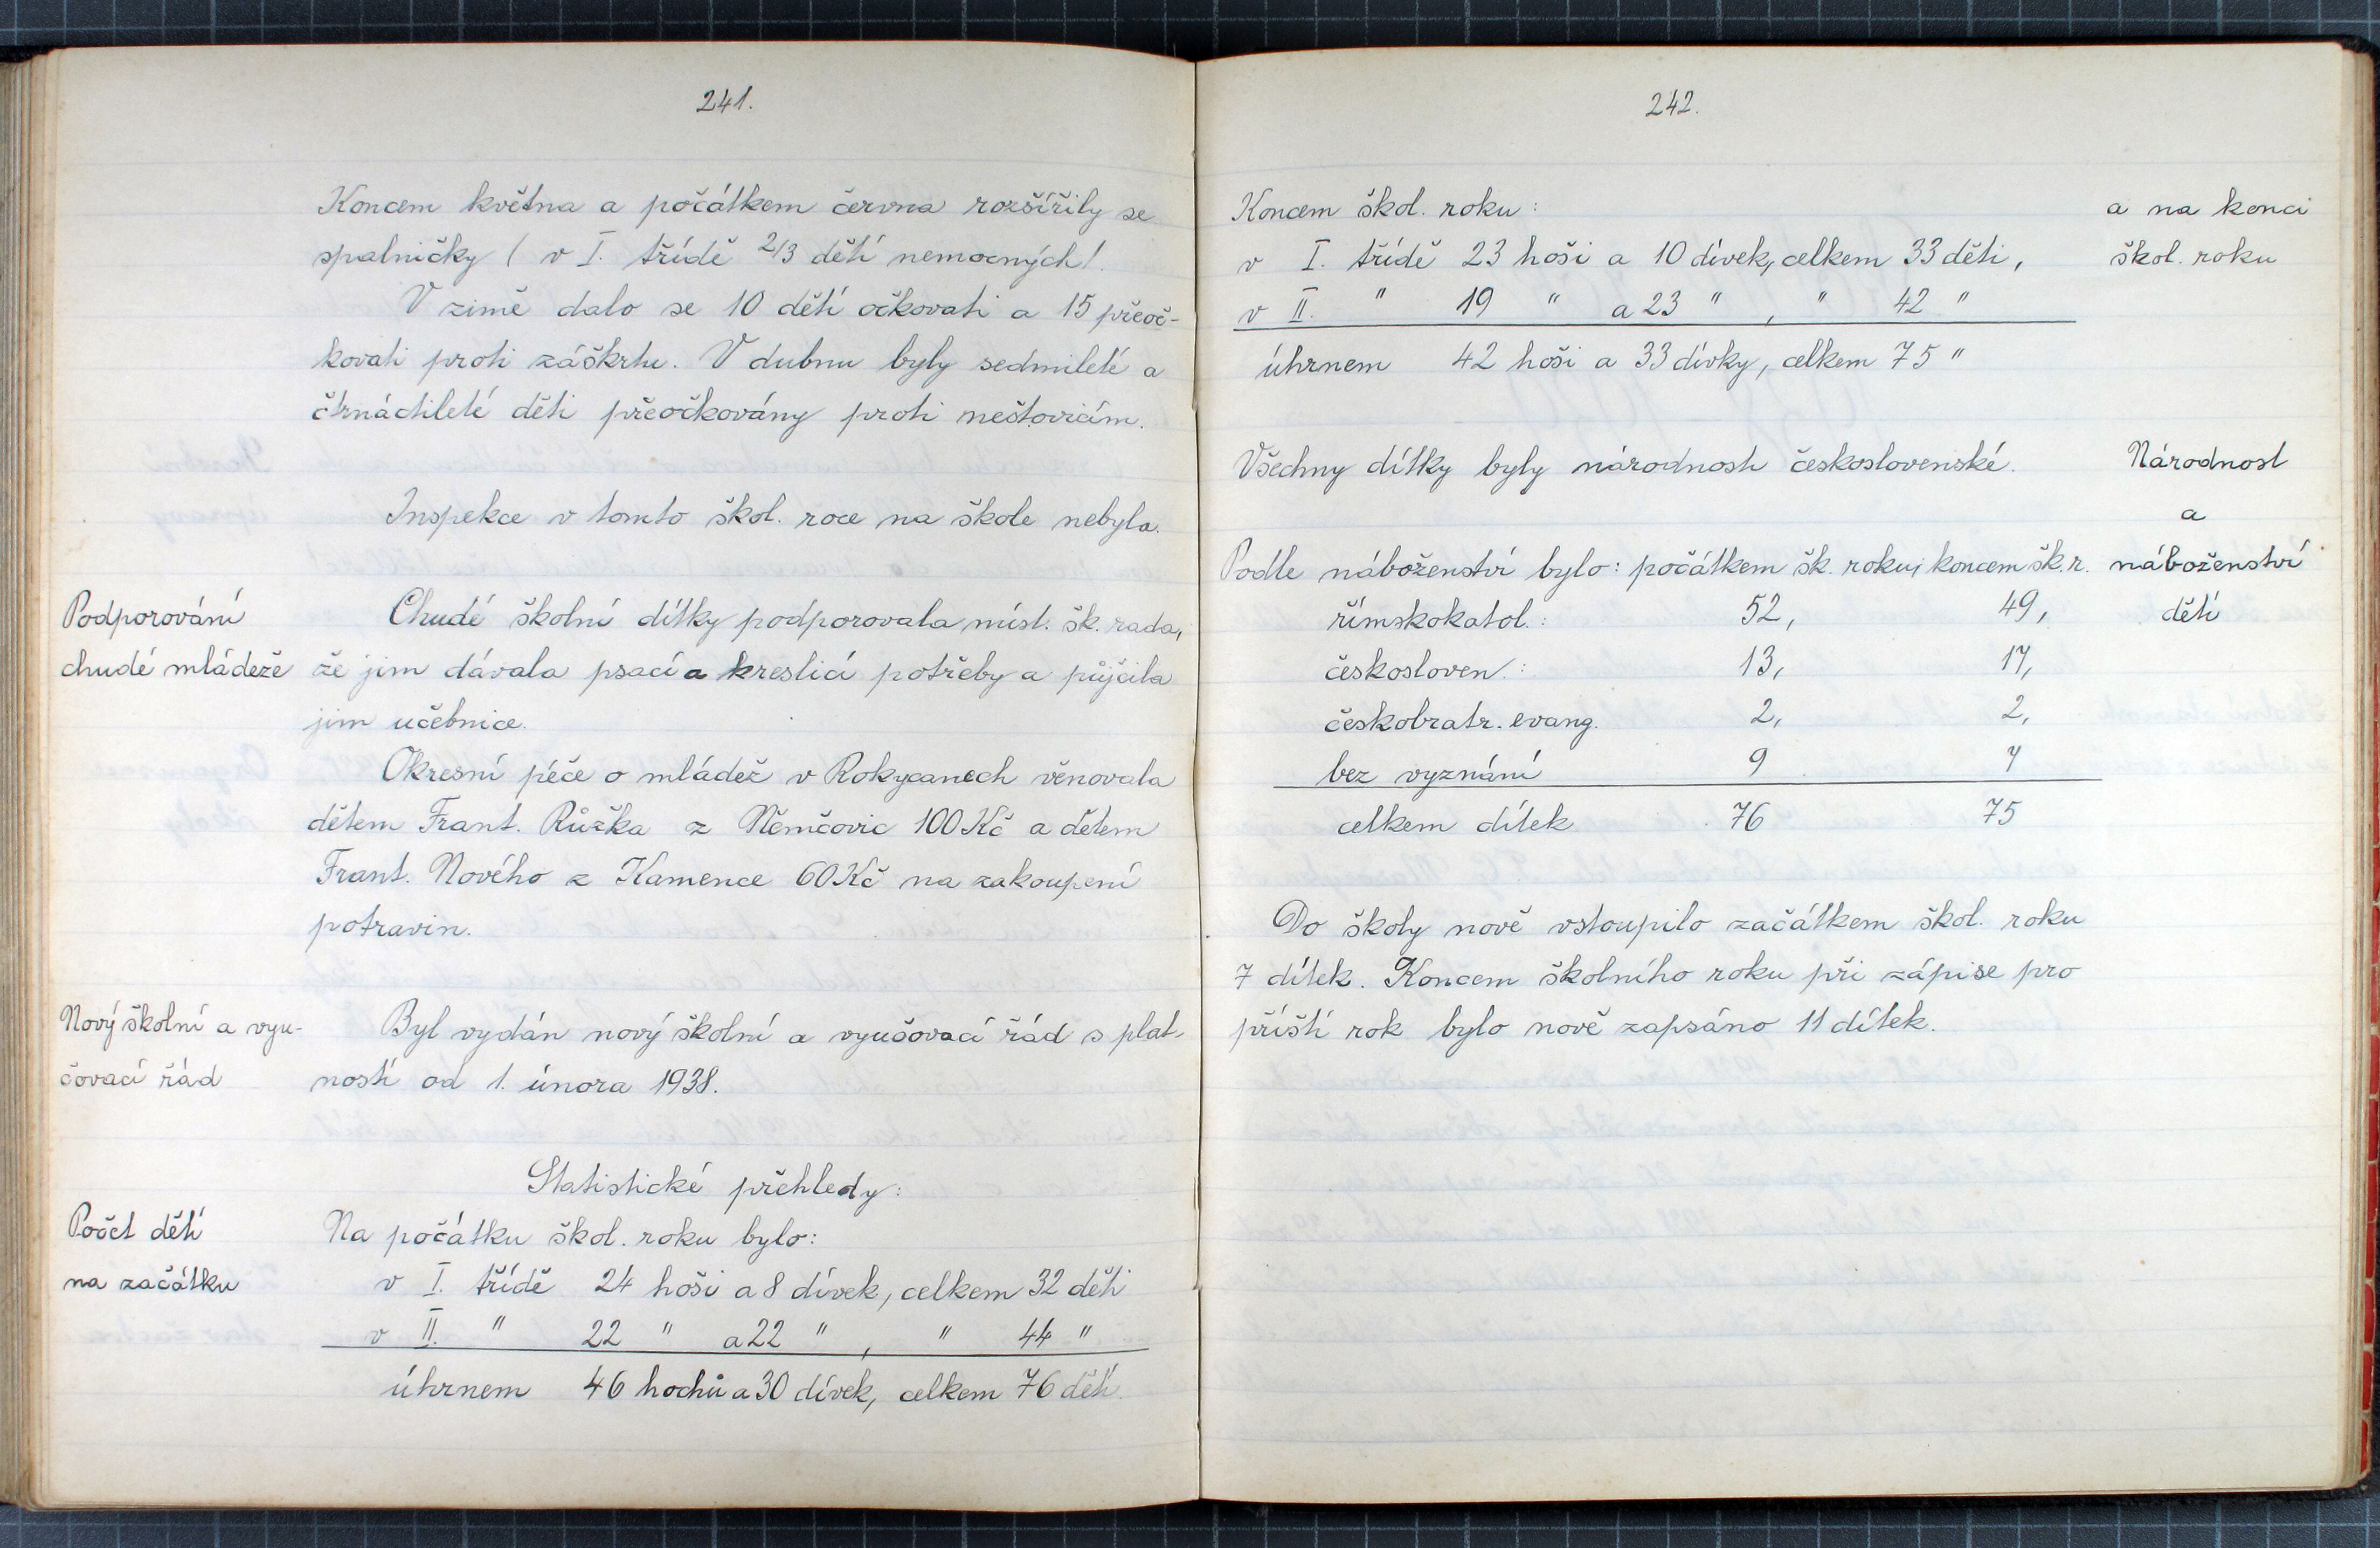 241.
Koncem května a počátkem června rozšířily se
spalničky ( v I. třídě 2/3 dětí nemocných).
V zimě dalo se 10 dětí očkovati a 15 přeoč-
kovati proti záškrtu. V dubnu byly sedmileté a
čtrnáctileté děti přeočkovány proti neštovicím.
Inspekce v tomto škol. roce na škole nebyla.
Podporování
chudé mládeže
Chudé školní dítky podporovala míst. šk. rada,
že jim dávala psací a kreslicí potřeby a půjčila
jim učebnice.
Okresní péče o mládež v Rokycanech věnovala
dětem Frant. Růžka z Němčovic 100 Kč a dětem
Frant. Nového z Kamence 60 Kč na zakoupení
potravin.
Nový školní a vyu-
čovací řád
Byl vydán nový školní a vyučovací řád s plat-
ností od 1. února 1938.
Statistické přehledy:
Počet dětí
na začátku
Na počátku škol. roku bylo:
v I. třídě 24 hoši a 8 dívek, celkem 32 děti
v II. " 22 " a 22 " , " 44 "
úhrnem 46 hochů a 30 dívek, celkem 76 dětí.
242.
Koncem škol. roku:
v I. třídě 23 hoši a 10 dívek, celkem 33 děti,
v II. " 19 " a 23 " , " 42 "
úhrnem 42 hoši a 33 dívky, celkem 75 "
a na konci
škol. roku
Všechny dítky byly národnosti československé.
Národnost
a
náboženství
dětí
Podle náboženství bylo: počátkem šk. roku, koncem šk. r.
římskokatol.: 52, 49,
českosloven.: 13, 17,
českobratr. evang. 2, 2,
bez vyznání 9 7
celkem dítek 76 75
Do školy nově vstoupilo začátkem škol. roku
7 dítek. Koncem školního roku při zápise pro
příští rok bylo nově zapsáno 11 dítek.